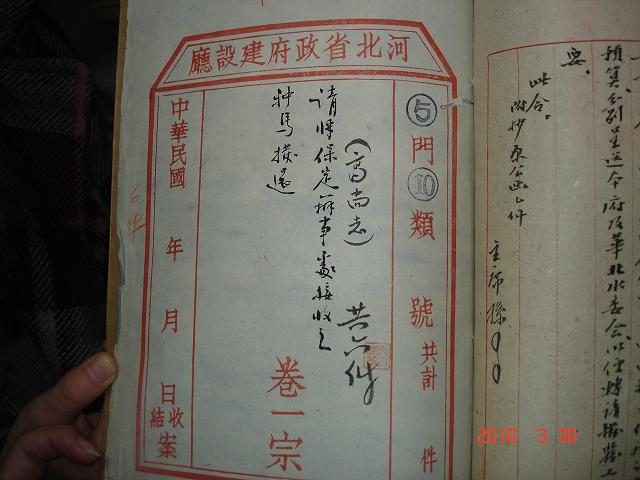 河北省政府建設廳
⑤門⑩類 號共計 件
(高尚志)
共六件
請將保定辦事處接收之
种馬撥還
卷一宗
中華民國 年 月 日收結案
預算分別呈送本府及華北水委會以便轉請撥發工
要。
此令。
附抄原公函一件
主席孫
2010 3 30